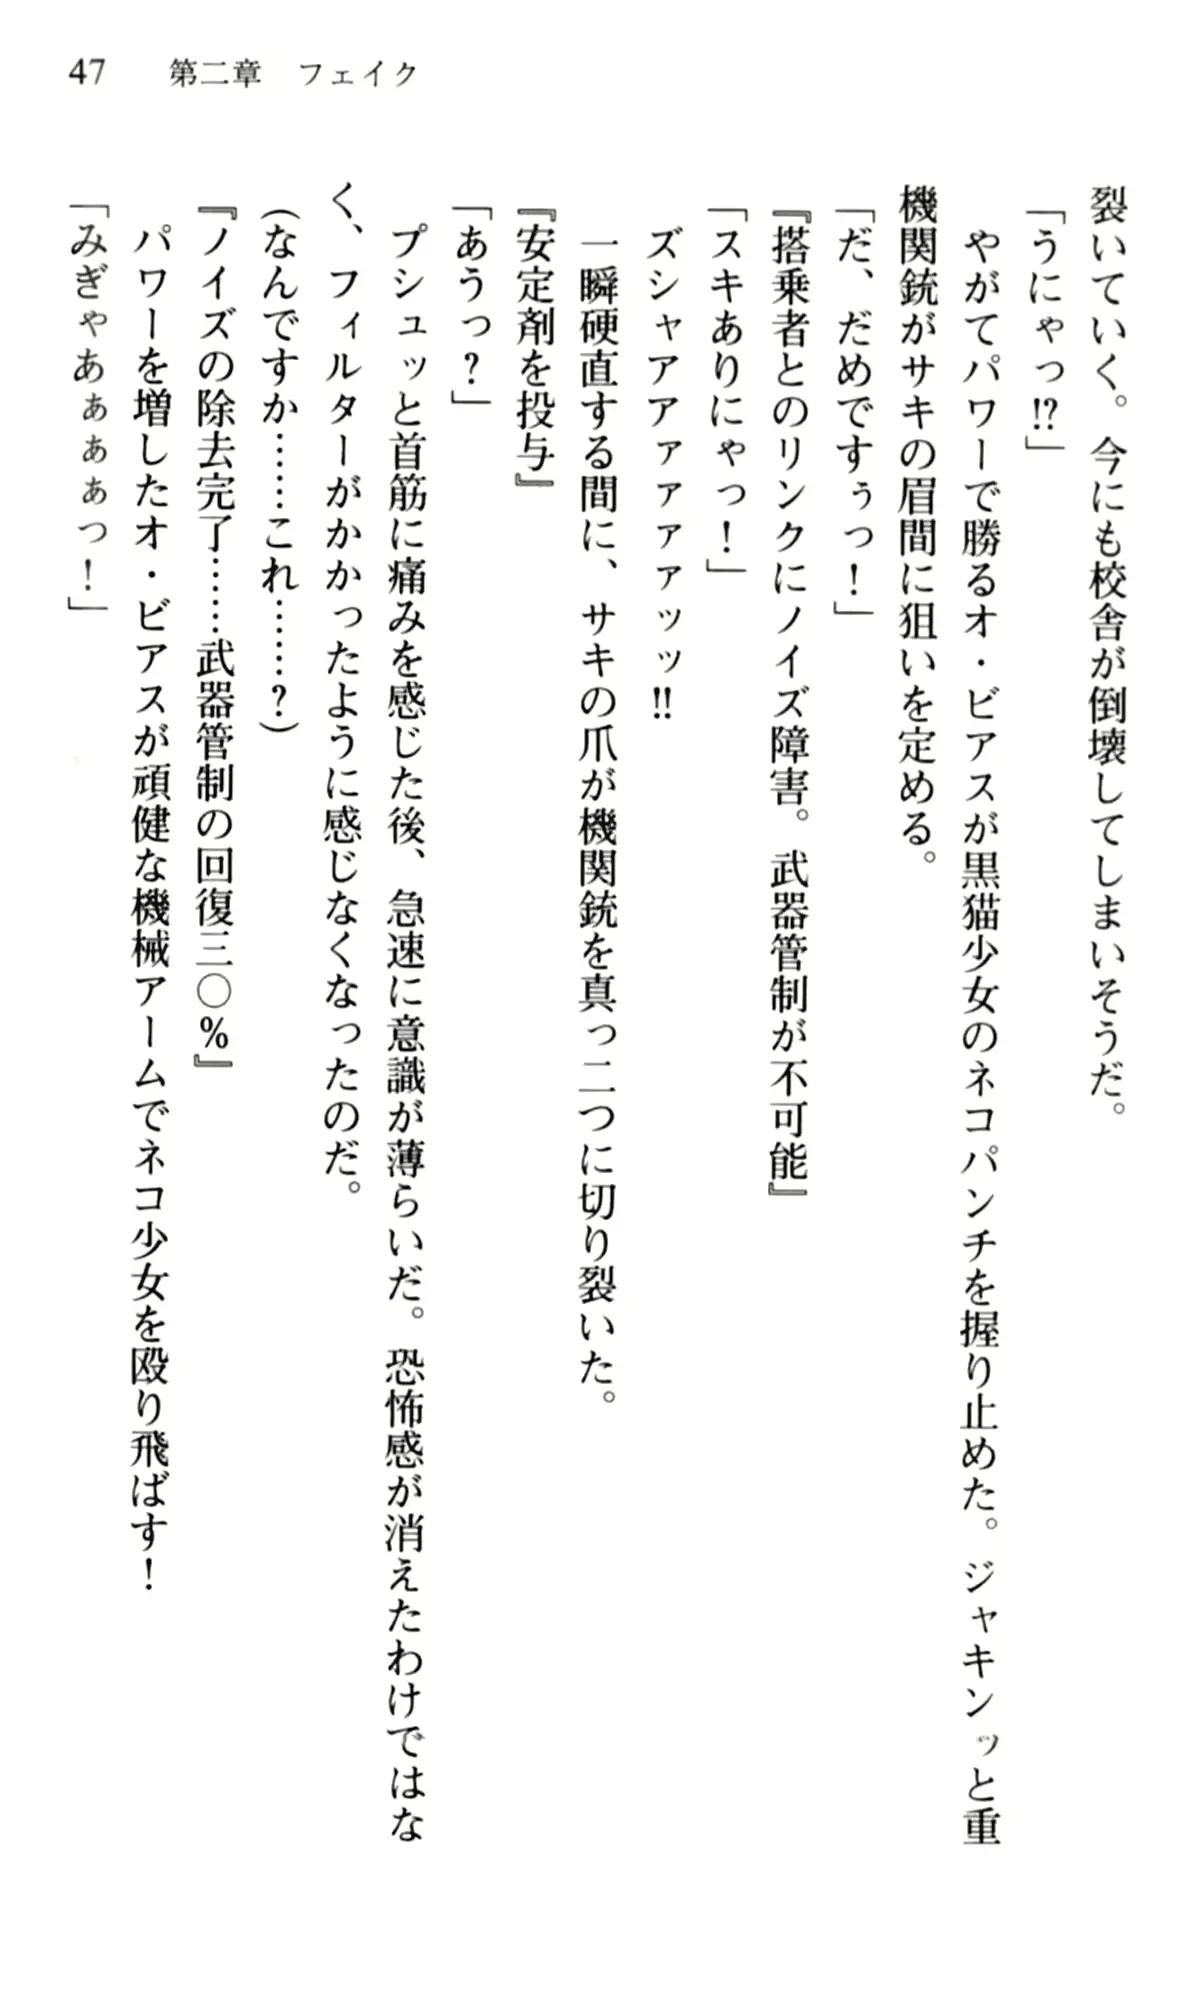 47　第二章　フェイク
裂いていく。今にも校舎が倒壊してしまいそうだ。
「うにゃっ!?」
　やがてパワーで勝るオ・ビアスが黒猫少女のネコパンチを握り止めた。ジャキンッと重
機関銃がサキの眉間に狙いを定める。
「だ、だめですぅっ！」
『搭乗者とのリンクにノイズ障害。武器管制が不可能』
「スキありにゃっ！」
　ズシャアアァァァァッッ!!
　一瞬硬直する間に、サキの爪が機関銃を真っ二つに切り裂いた。
『安定剤を投与』
「あうっ？」
　プシュッと首筋に痛みを感じた後、急速に意識が薄らいだ。恐怖感が消えたわけではな
く、フィルターがかかったように感じなくなったのだ。
（なんですか……これ……？）
『ノイズの除去完了……武器管制の回復三〇%』
　パワーを増したオ・ビアスが頑健な機械アームでネコ少女を殴り飛ばす！
「みぎゃあぁぁぁっ！」